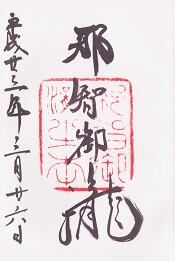 那智御瀧
平成廿三年三月廿六日